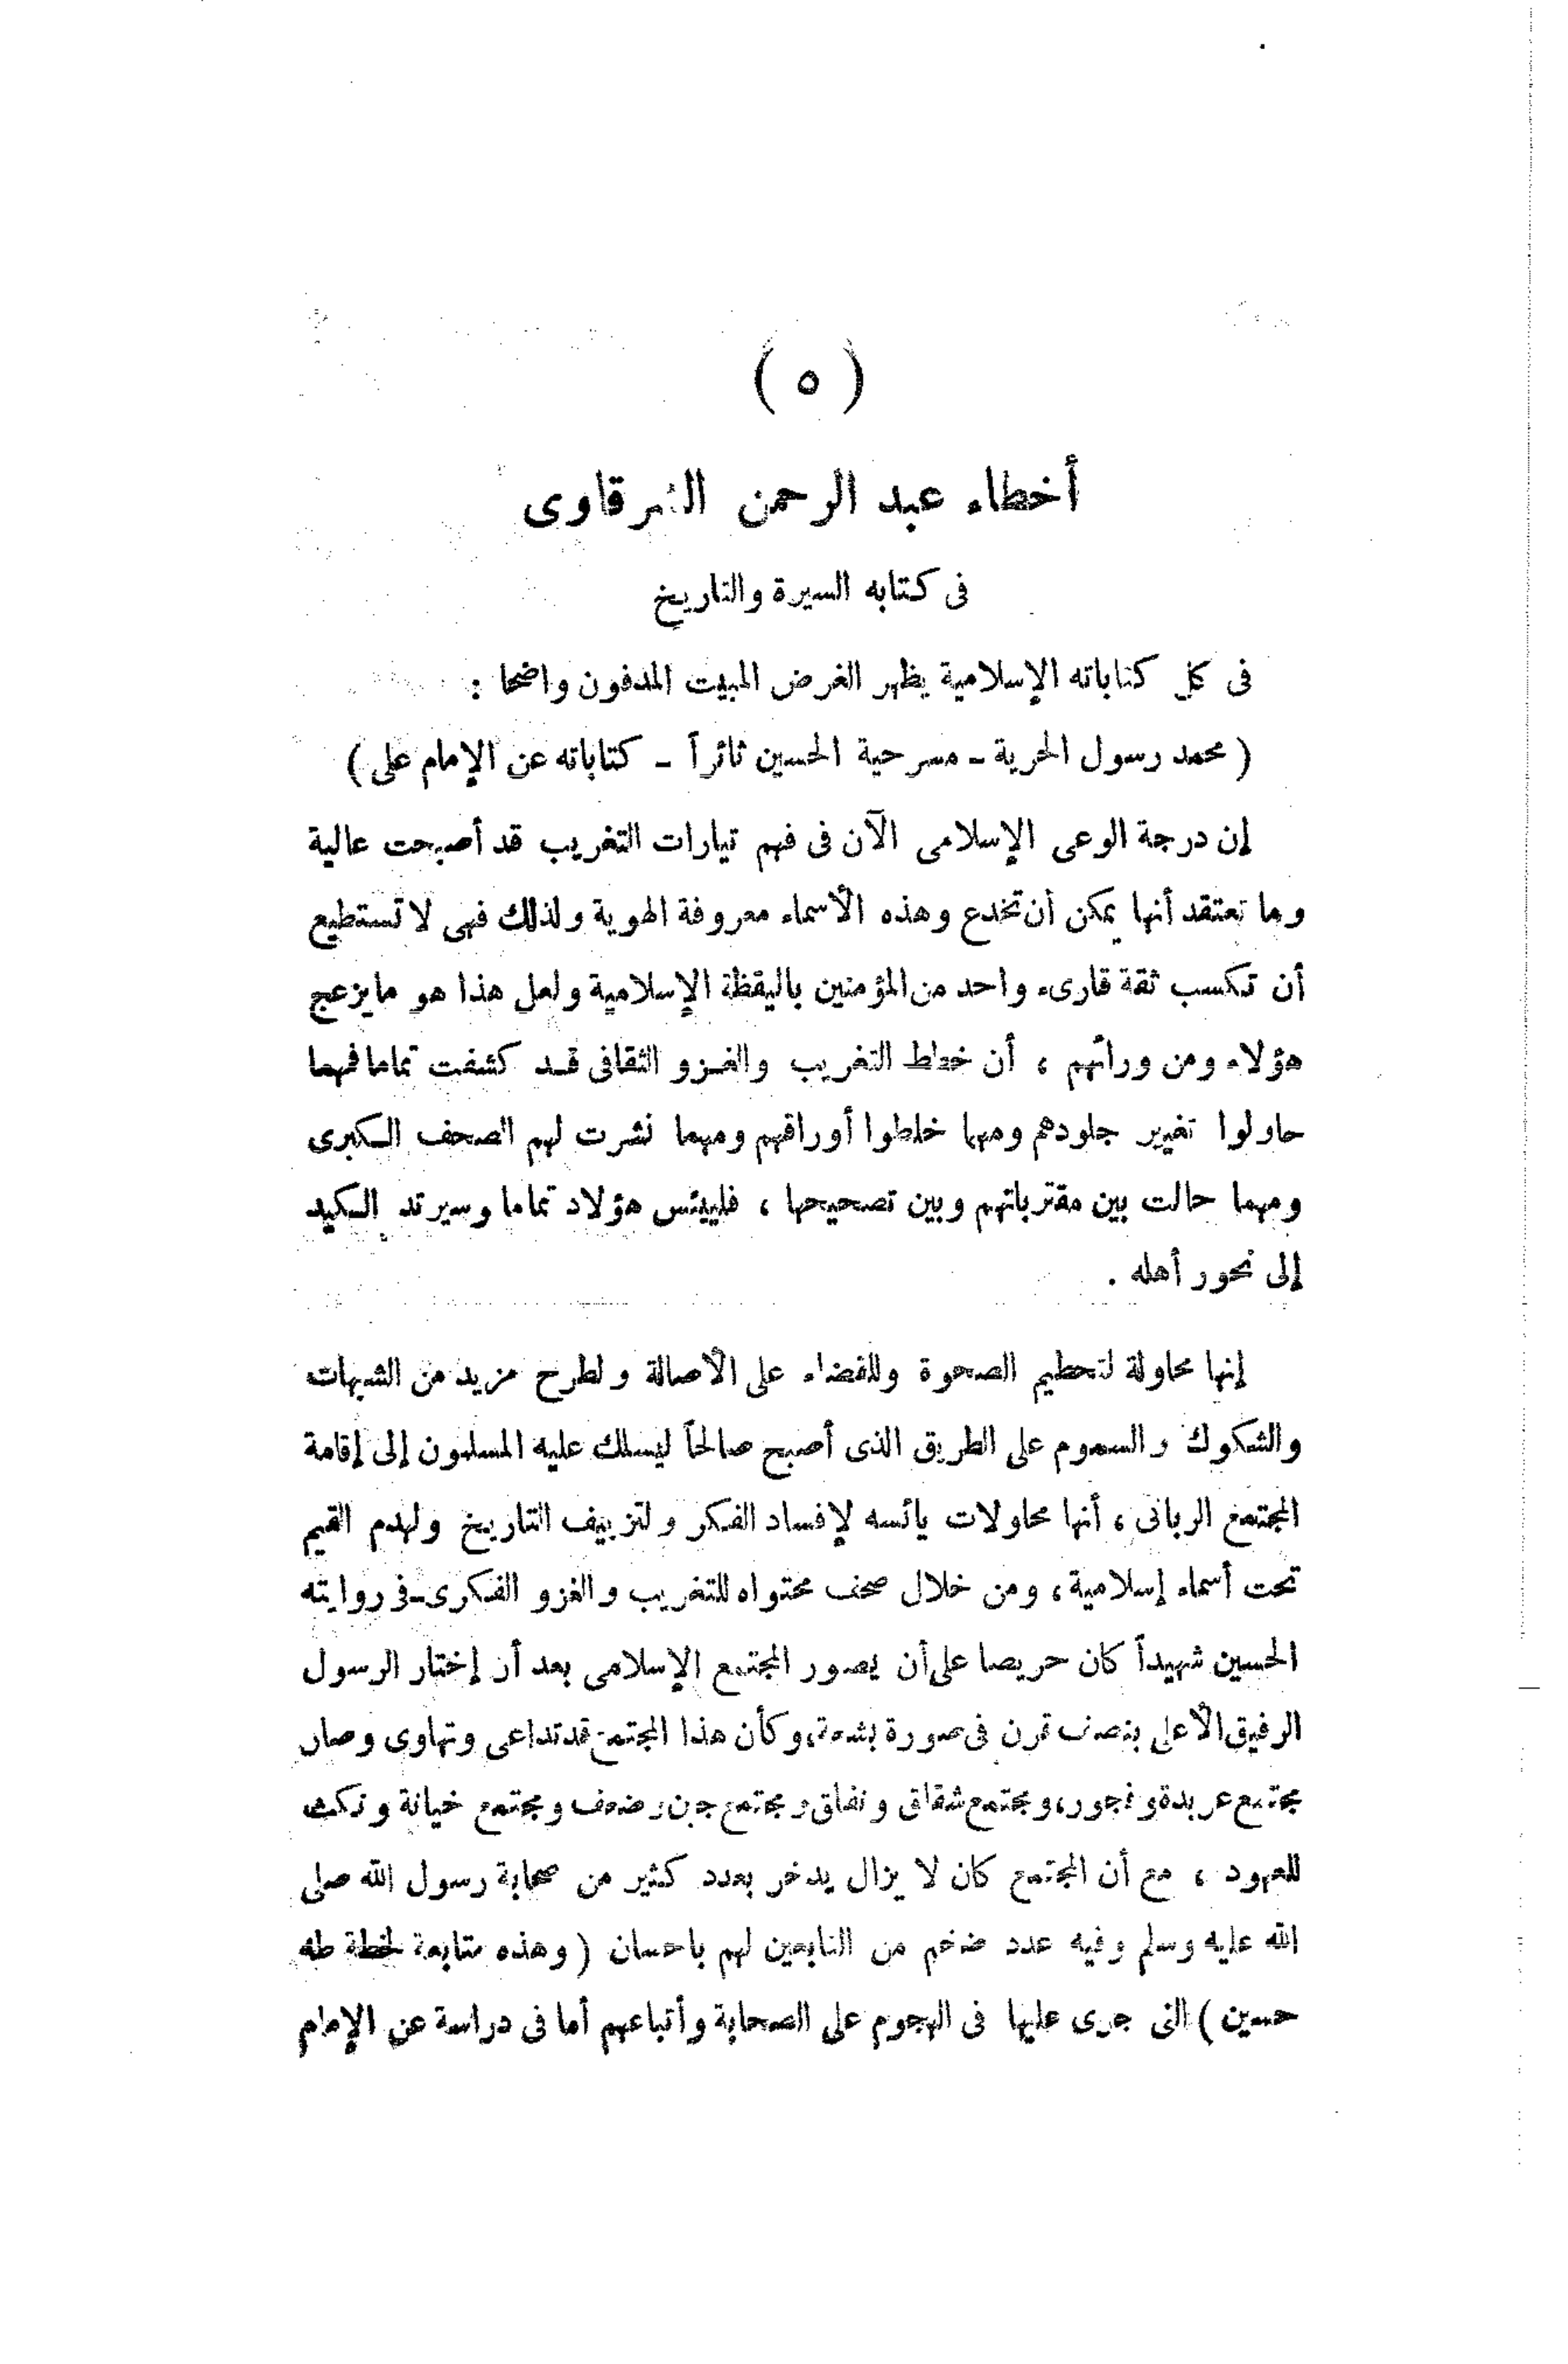 ( ٥ )
أخطاء عبد الرحمن الشرقاوى
فى كتابه السيرة والتاريخ
فى كل كتاباته الإسلامية يظهر الغرض المبيت المدفون واضحا :
( محمد رسول الحرية - مسرحية الحسين ثائراً - كتاباته عن الإمام على )
إن درجة الوعى الإسلامى الآن فى فهم تيارات التغريب قد أصبحت عالية
وما نعتقد أنها يمكن أن تخدع وهذه الأسماء معروفة الهوية ولذلك فهى لا تستطيع
أن تكسب ثقة قارىء واحد من المؤمنين باليقظة الإسلامية ولعل هذا هو مايزعج
هؤلاء ومن ورائهم ، أن خطط التغريب والغزو الثقافى قد كشفت تماما فمهما
حاولوا تغيير جلودهم ومهما خلطوا أوراقهم ومهما نشرت لهم الصحف الكبرى
ومهما حالت بين مقترباتهم وبين تصحيحها ، فلييئس هؤلاد تماما وسيرتد الكيد
إلى نحور أهله .
إنها محاولة لتحطيم الصحوة وللقضاء على الأصالة ولطرح مزيد من الشبهات
والشكوك والسموم على الطريق الذى أصبح صالحاً ليسلك عليه المسلمون إلى إقامة
المجتمع الربانى ، أنها محاولات يائسه لإفساد الفكر ولتزييف التاريخ ولهدم القيم
تحت أسماء إسلامية ، ومن خلال صحف محتواه للتغريب والغزو الفكرى - فى روايته
الحسين شهيداً كان حريصا على أن يصور المجتمع الإسلامى بعد أن إختار الرسول
الرفيق الأعلى بنصف قرن فى صورة بشعة ، وكأن هذا المجتمع قد تداعى وتهاوى وصار
مجتمع عربدة وفجور ، ومجتمع شقاق ونفاق ومجتمع جبن وضعف ومجتمع خيانة ونكث
للعهود ، مع أن المجتمع كان لا يزال يدخر بعدد كثير من صحابة رسول الله صلى
الله عليه وسلم وفيه عدد ضخم من التابعين لهم باحسان ( وهذه متابعة لخطة طه
حسين ) التى جرى عليها فى الهجوم على الصحابة وأتباعهم أما فى دراسة عن الإمام